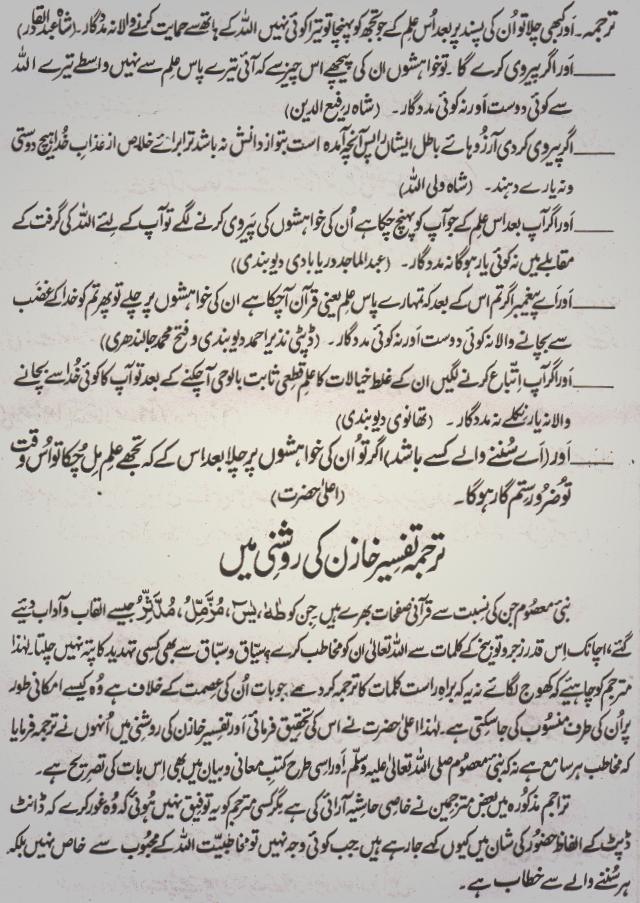 ترجمہ۔ اَور کبھی چلا تو اُن کی پسند پر بعد اُس علم کے جو تجھ کو پہنچا تو تیرا کوئی نہیں اللہ کے ہاتھ سے حمایت کرنے والا نہ مددگار۔ (شاہ عبدالقادر)
ــــــ اَور اگر پیروی کرے گا تو خواہشوں ان کی پیچھے اس چیز سے کہ آئی تیرے پاس علم سے نہیں واسطے تیرے اللہ
سے کوئی دوست اَور نہ کوئی مددگار۔ (شاہ رفیع الدین)
ــــــ اگر پیروی کردی آرزوہائے باطل ایشاں را پس آنچہ آمدہ است بتو از دانش نہ باشد ترا برائے خلاص از عذاب خدا ہیچ دوستی
ونہ یارے دہند۔ (شاہ ولی اللہ)
ــــــ اَور اگر آپ بعد اس علم کے جو آپ کو پہنچ چکا ہے اُن کی خواہشوں کی پَیروی کرنے لگے تو آپ کے لئے اللہ کی گرفت کے
مقابلے میں نہ کوئی یار ہوگا نہ مددگار۔ (عبدالماجد دریابادی دیوبندی)
ــــــ اَور اَے پیغمبر اگر تم اس کے بعد کہ تمہارے پاس علم یعنی قرآن آچکا ہے ان کی خواہشوں پر چلے تو پھر تم کو خدا کے غضَب
سے بچانے والا نہ کوئی دوست اَور نہ کوئی مددگار۔ (ڈپٹی نذیر احمد دیوبندی و فتح محمد جالندھری)
ــــــ اَور اگر آپ اِتّباع کرنے لگیں ان کے غلط خیالات کا علم قطعی ثابت بالوحی آچکنے کے بعد تو آپ کا کوئی خُدا سے بچانے
والا نہ یار نکلے نہ مددگار۔ (تھانوی دیوبندی)
ــــــ اَور (اَے سُننے والے کسے باشد) اگر تو اُن کی خواہشوں پر چلا بعد اس کے کہ تجھے علم مِل چُکا تو اُس وقت
تُو ضُرور ستم گار ہوگا۔ (اعلیٰ حضرت)
ترجمہ تفسیر خازن کی روشنی میں
نبیٔ معصُوم جن کی نسبت سے قرآنی صفحات بھرے ہیں جِن کو طٰهٰ، یٰسٓ، مُزَّمِّلُ، مُدَّثِّرُ جیسے القاب و آداب دیئے
گئے، اچانک اِس قدر زجر و توبیخ کے کلمات سے اللہ تعالیٰ ان کو مخاطب کرے؟ سیّاق و سبّاق سے بھی کسِی تہدید کا پتہ نہیں چلتا۔ لہٰذا
مترجم کو چاہئیے کہ کھوج لگائے نہ یہ کہ براہِ راست کلمات کا ترجمہ کردے۔ جو بات اُن کی عصمت کے خلاف ہے وُہ کیسے امکانی طَور
پر اُن کی طرف منسُوب کی جاسکتی ہے۔ لہٰذا اعلیٰ حضرت نے اس کی تحقیق فرمائی اَور تفسیر خازن کی روشنی میں اُنہوں نے ترجمہ فرمایا
کہ مخاطب ہر سامع ہے نہ کہ نبیٔ معصوم صلی اللہ تعالیٰ علیہ وسلّم۔ اَور اسی طرح کتب معانی و بیان میں بھی اِس بات کی تصریح ہے۔
تراجم مذکُورہ میں بعض مترجمین نے خاصی حاشیہ آرائی کی ہے مگر کسِی مترجم کو یہ توفیق نہیں ہُوئی کہ وُہ غور کرے کہ ڈانٹ
ڈپٹ کے الفاظ حضُور کی شان میں کیوں کہے جارہے ہیں جب کوئی وجہ نہیں تو مخاطَبیّت اللہ کے محبُوب سے خاص نہیں بلکہ
ہر سُننے والے سے خطاب ہے۔